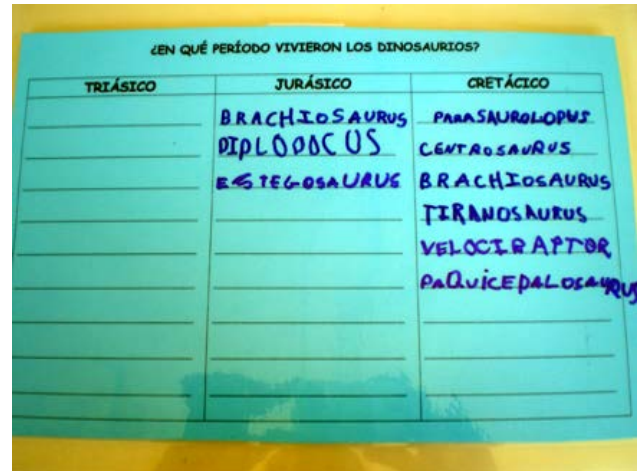 ¿EN QUÉ PERÍODO VIVIERON LOS DINOSAURIOS?
TRIÁSICO
JURÁSICO
CRETÁCICO
BRACHIOSAURUS
DIPLODOCUS
ESTEGOSAURUS
PARASAUROLOPUS
CENTROSAURUS
BRACHIOSAURUS
TIRANOSAURUS
VELOCIRAPTOR
PAQUICEPALOSAURUS